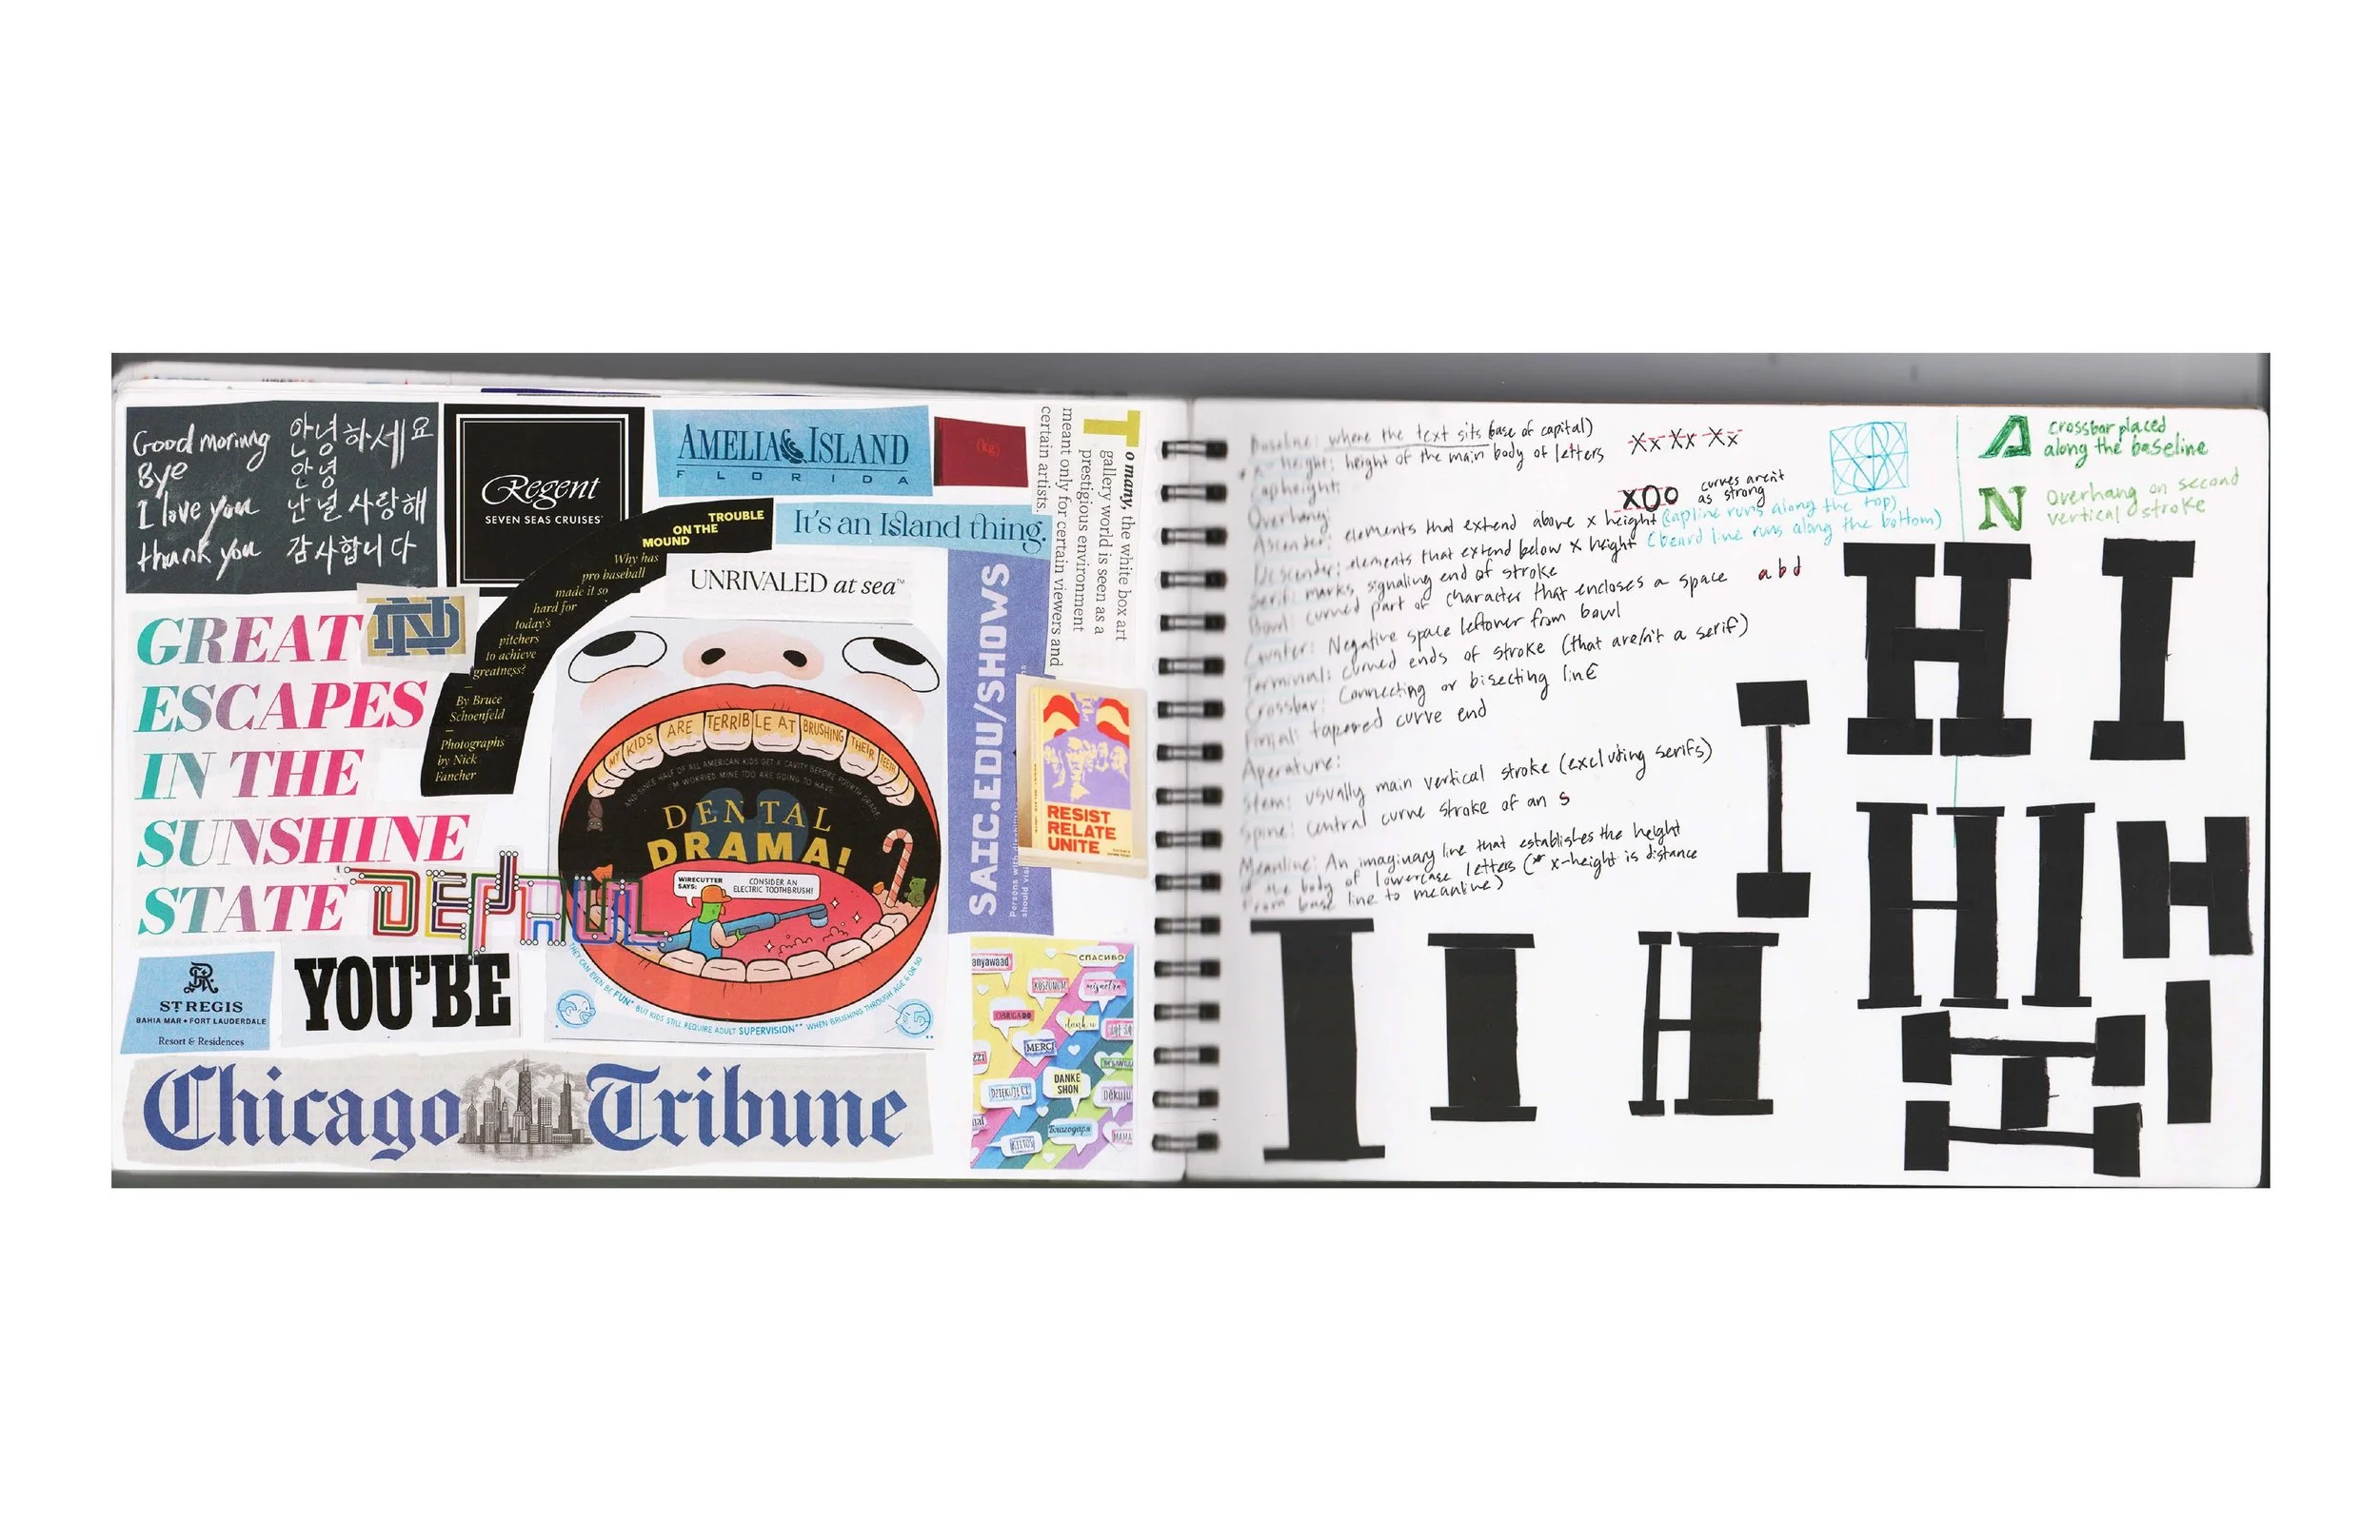 Good morinng 안녕하세요
Bye 안녕
I love you 난널사랑해
thank you 감사합니다
Regent
SEVEN SEAS CRUISES
AMELIA ISLAND
FLORIDA
(kg)
To many, the white box art
gallery world is seen as a
prestigious environment
meant only for certain viewers and
certain artists.
It's an Island thing.
TROUBLE
ON THE
MOUND
Why has
pro baseball
made it so
hard for
today's
pitchers
to achieve
greatness?
By Bruce
Schoenfeld
Photographs
by Nick
Fancher
UNRIVALED at sea™
ND
GREAT
ESCAPES
IN THE
SUNSHINE
STATE
DEPAUL
MY KIDS ARE TERRIBLE AT BRUSHING THEIR TEETH
AND SINCE HALF OF ALL AMERICAN KIDS GET A CAVITY BEFORE FOURTH GRADE,
I'M WORRIED MINE TOO ARE GOING TO HAVE
DENTAL
DRAMA!
WIRECUTTER
SAYS:
CONSIDER AN
ELECTRIC TOOTHBRUSH!
THEY CAN EVEN BE FUN* BUT KIDS STILL REQUIRE ADULT SUPERVISION** WHEN BRUSHING THROUGH AGE 6 OR SO
SAIC.EDU/SHOWS
Persons with
should visi
RESIST
RELATE
UNITE
ST REGIS
BAHIA MAR • FORT LAUDERDALE
Resort & Residences
YOU'BE
Chicago Tribune
anyawaad
СПАСИБО
OBRIGADO
MERCI
DANKE
SHON
Děkuju
Благодаря
KIITOS
Baseline: where the text sits (base of capital)
x height: height of the main body of letters
Xx Xx Xx
Capheight:
xOo curves aren't
as strong
Overhang:
Ascender: elements that extend above x height (capline runs along the top)
Descender: elements that extend below x height (beard line runs along the bottom)
Serif: marks, signaling end of stroke
Bowl: curved part of character that encloses a space a b d
Counter: Negative space leftover from bowl
Terminal: curved ends of stroke (that aren't a serif)
Crossbar: Connecting or bisecting line
Finial: tapered curve end
Aperature:
Stem: usually main vertical stroke (excluding serifs)
Spine: central curve stroke of an s
Meanline: An imaginary line that establishes the height
of the body of lowercase letters (* x-height is distance
from base line to meanline)
A crossbar placed
along the baseline
N Overhang on second
vertical stroke
H I
I
H I H
I I H
H I